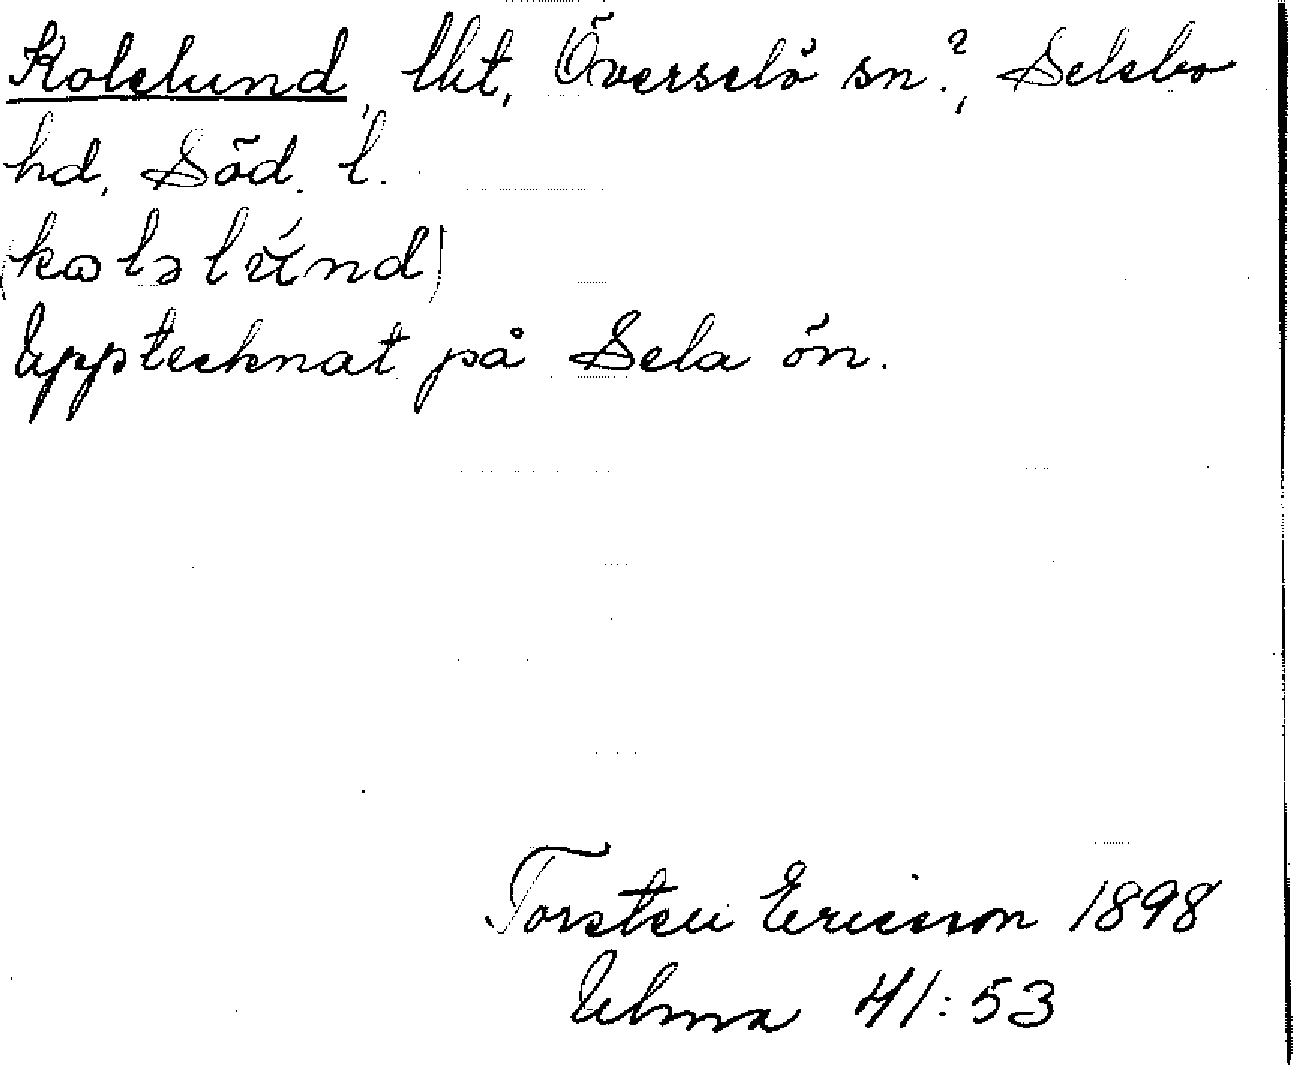 Kolelund, lht, Överselö sn.?, Selebo
hd, Söd. l.
(kɷlɘlúnd)
Upptecknat på Sela ön.
Torsten Ericsson 1898
Ulma 41:53